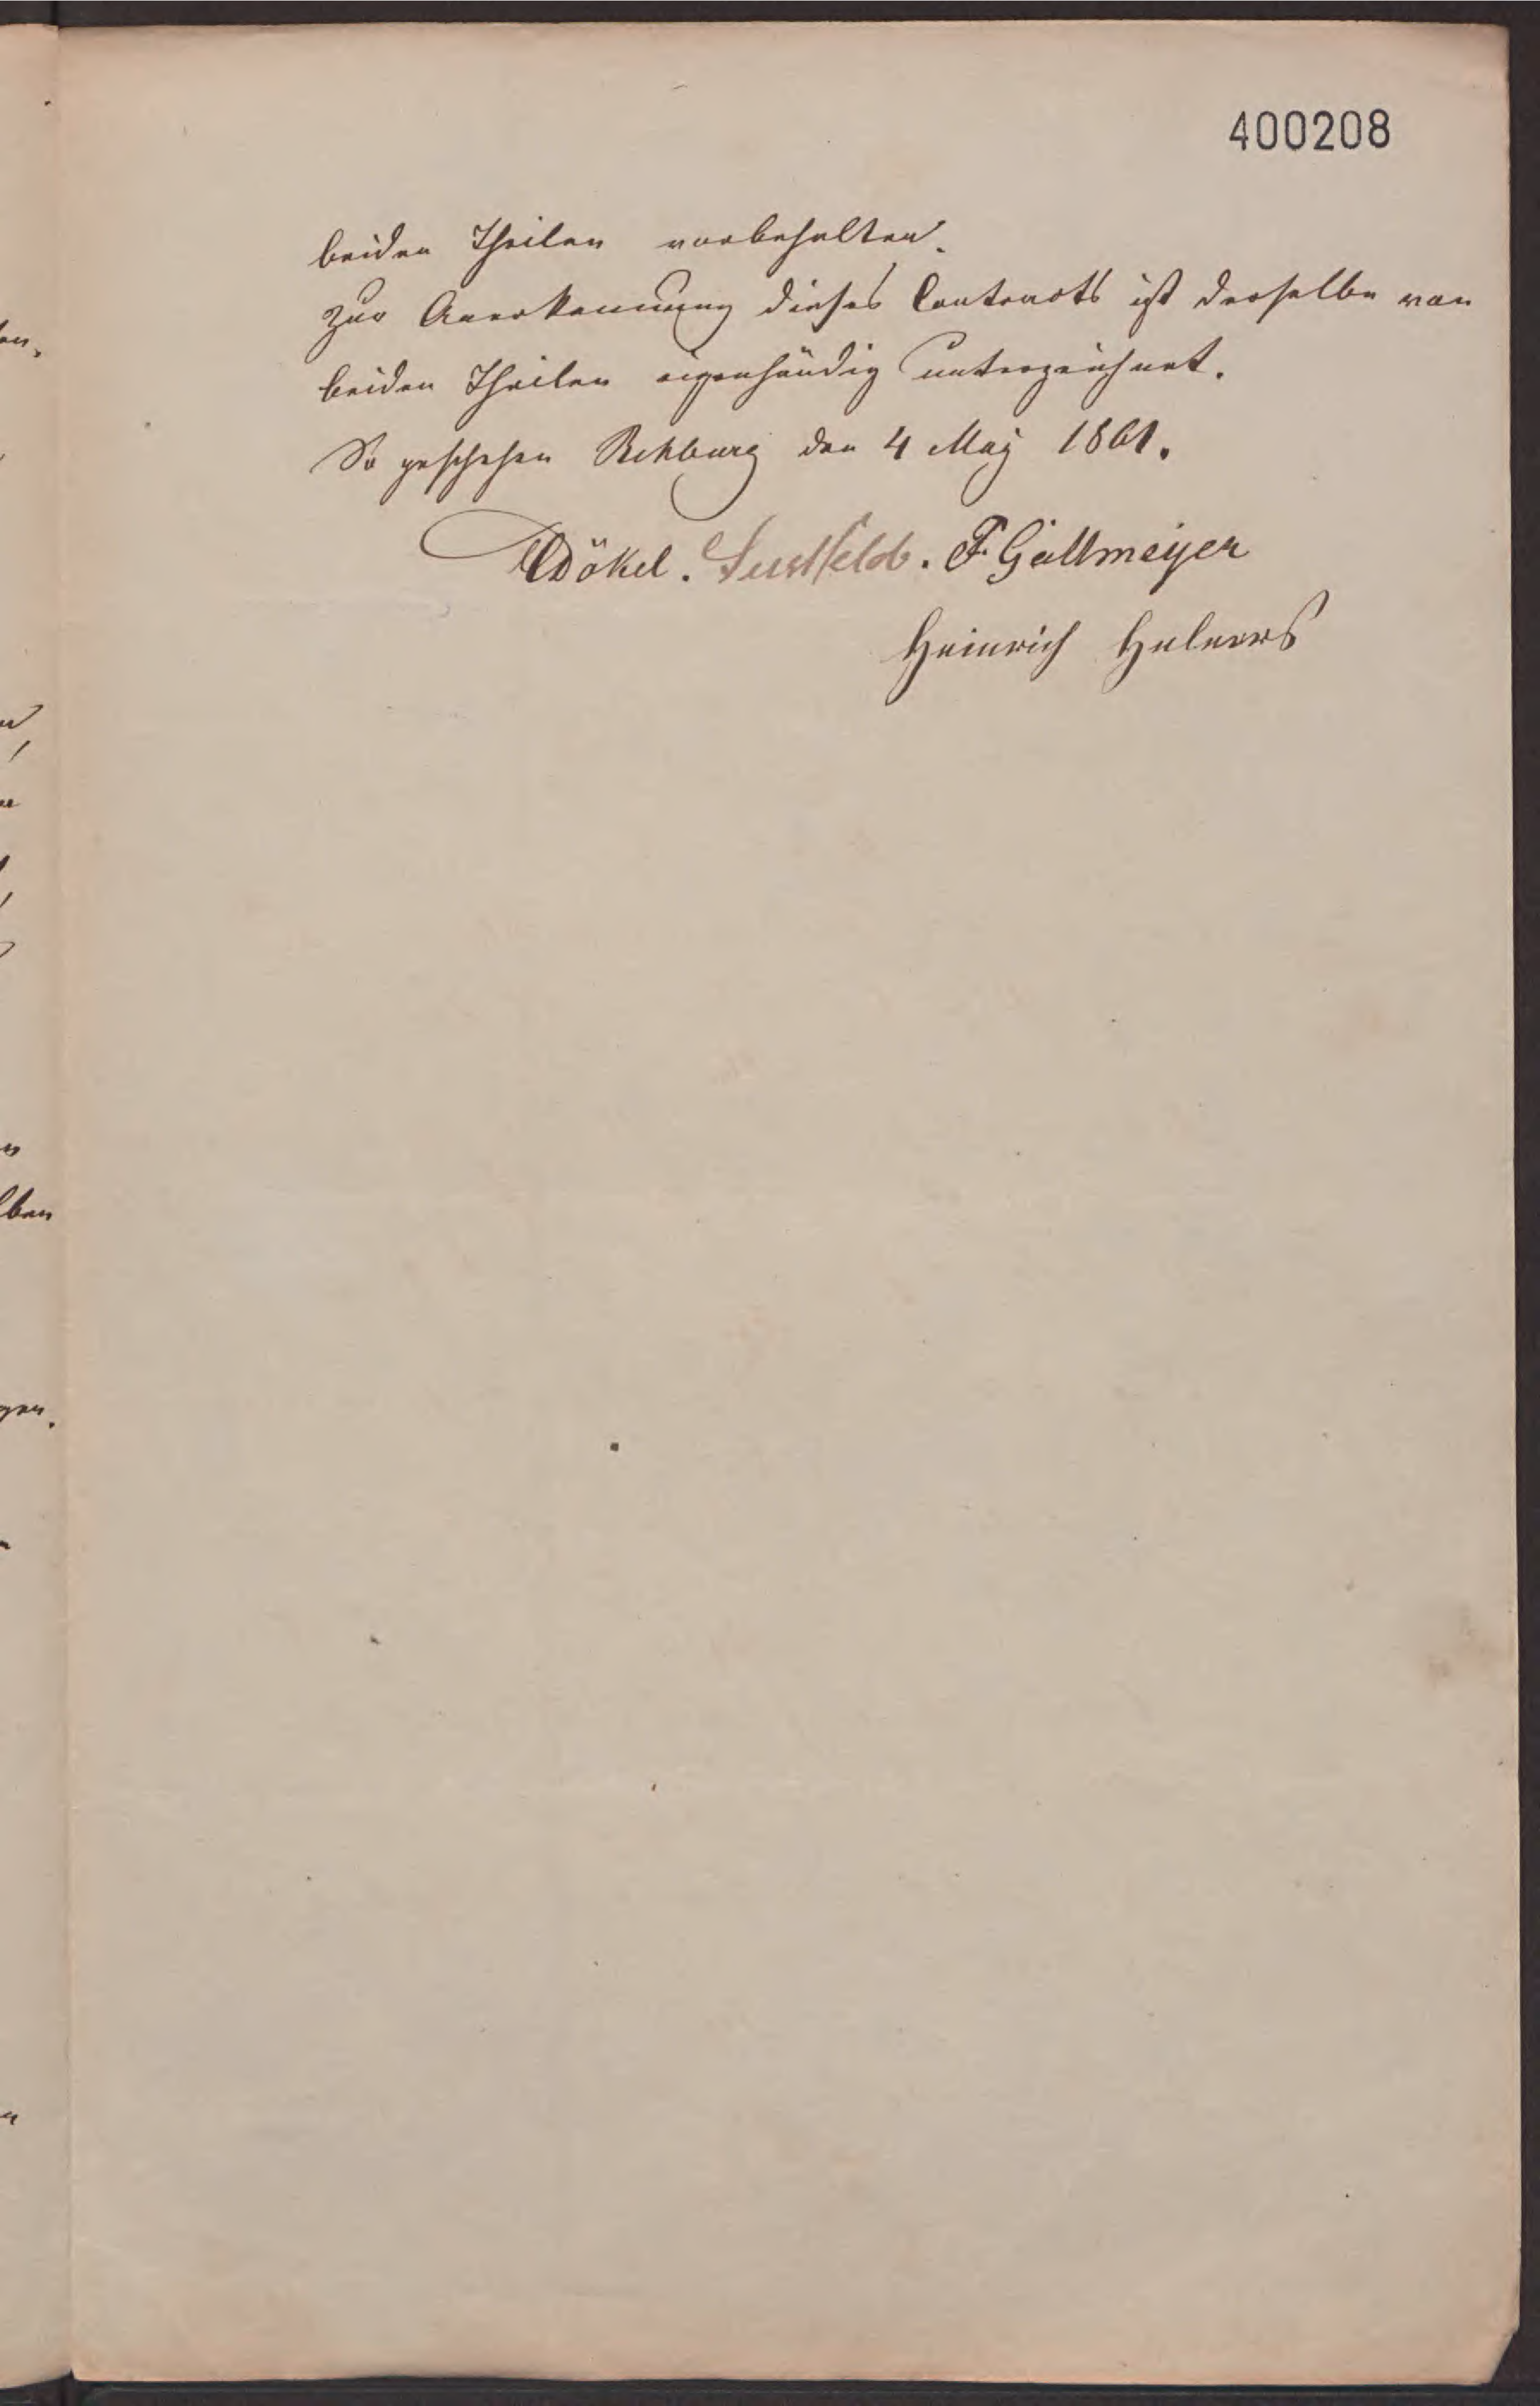 400208
beiden Theilen vorbehalten.
Zur Anerkennung dieses Contracts ist derselbe von
beiden Theilen eigenhändig unterzeichnet.
So geschehen Rehburg den 4 May 1861.
Dökel. Sustfeld. F. Gallmeyer
Heinrich Hulners